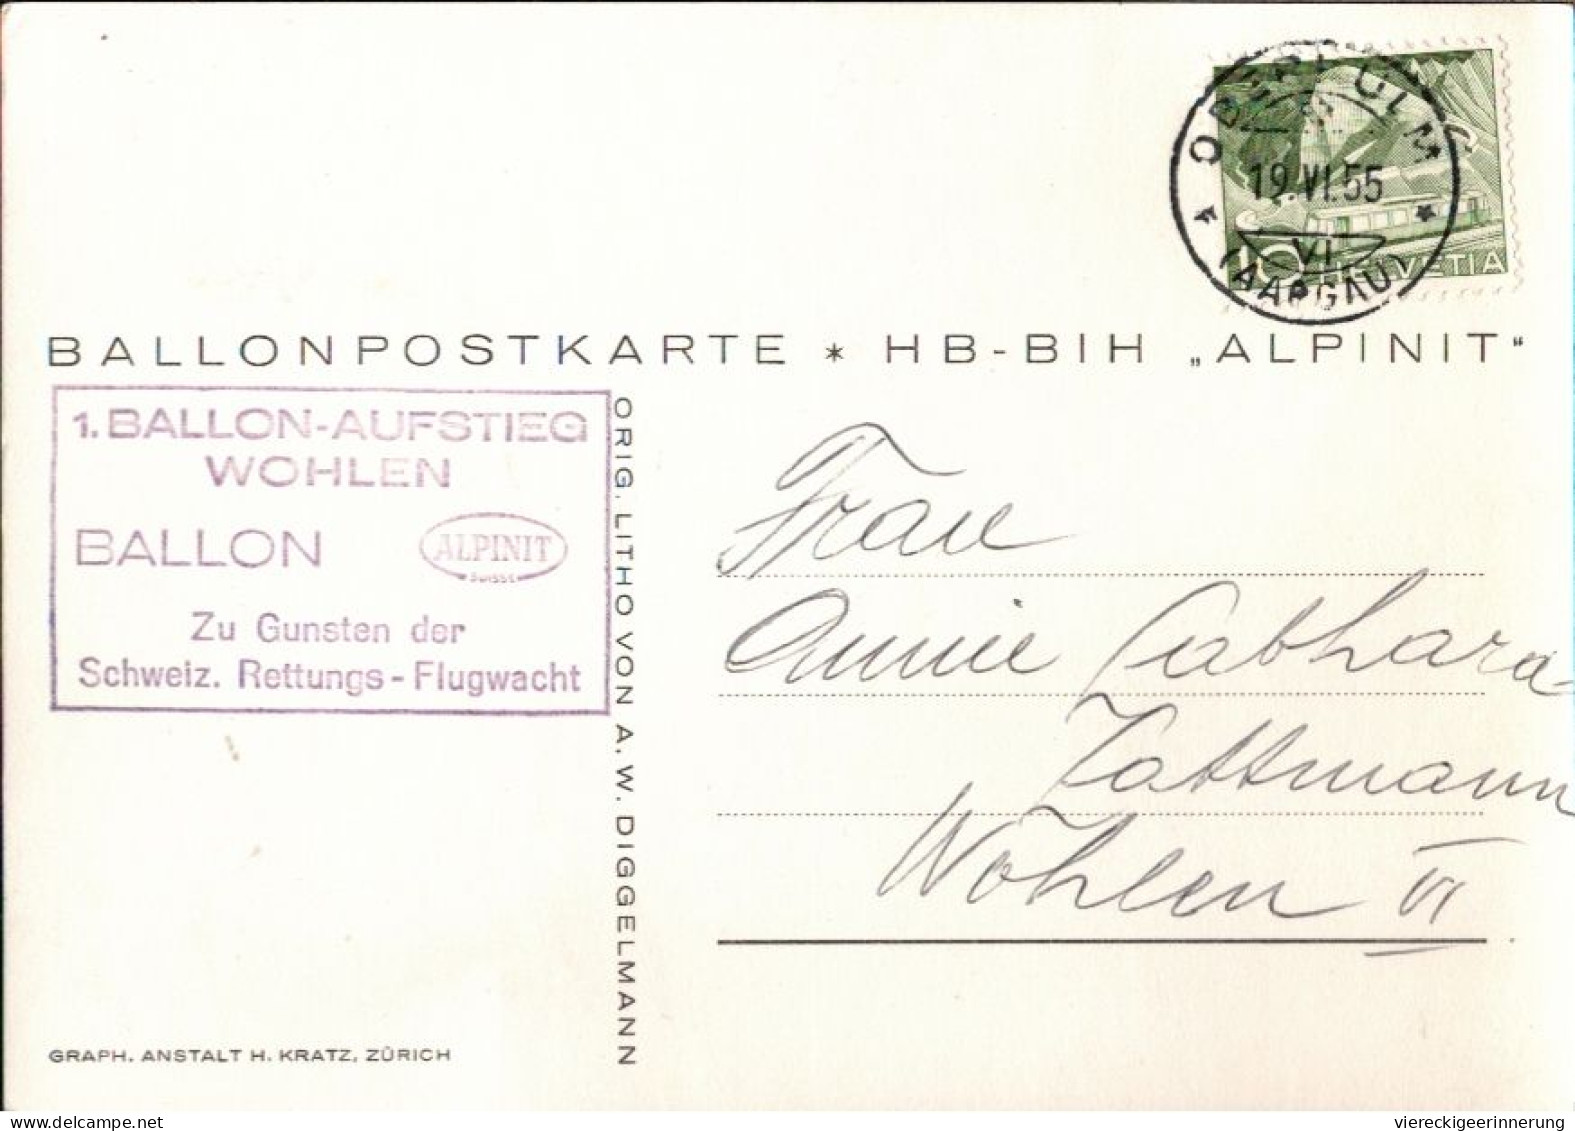 OBERKULM
19.VI.55
VI
(AARGAU)
10 HELVETIA
BALLONPOSTKARTE * HB-BIH „ALPINIT"
1. BALLON-AUFSTIEG
WOHLEN
BALLON ALPINIT
SUISSE
Zu Gunsten der
Schweiz. Rettungs-Flugwacht
ORIG. LITHO VON A. W. DIGGELMANN
Frau
Annie
Wohlen VI
GRAPH. ANSTALT H. KRATZ, ZÜRICH
viereckigeerinnerung